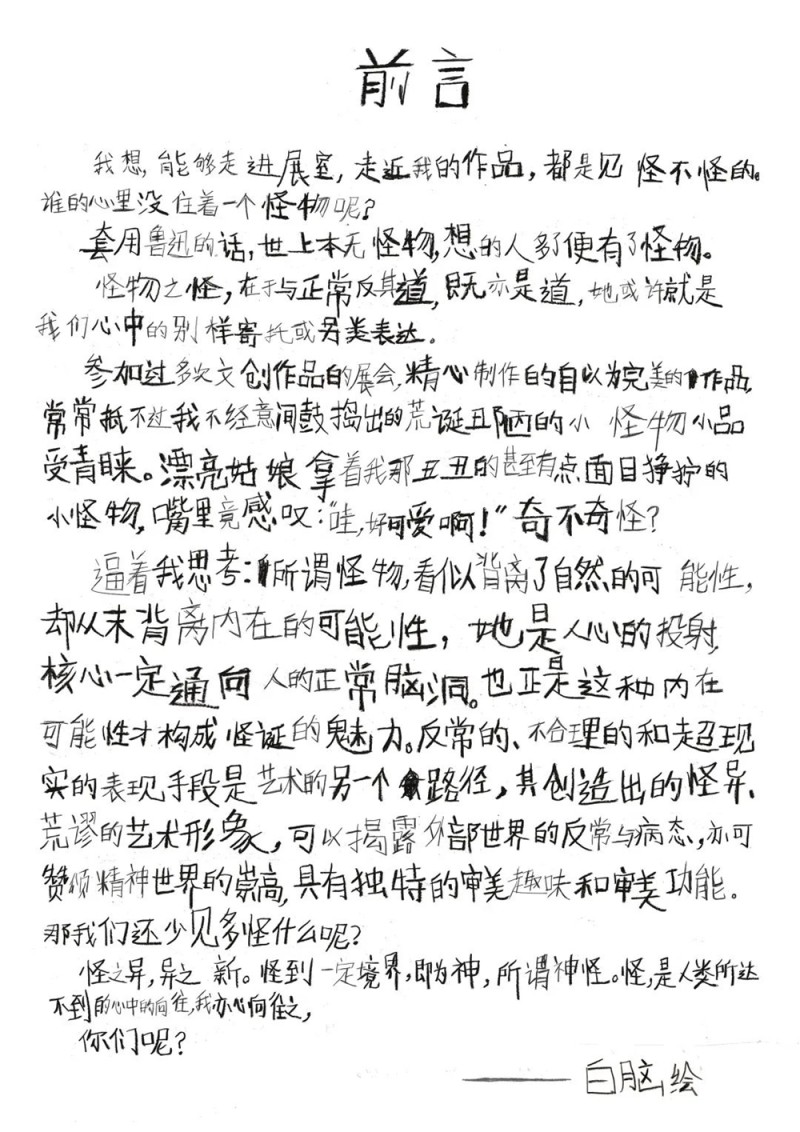 前言
我想,能够走进展室,走近我的作品,都是见怪不怪的。
谁的心里没住着一个怪物呢?
套用鲁迅的话,世上本无怪物,想的人多了便有了怪物。
怪物之怪,在于与正常反其道,既亦是道,她或许就是
我们心中的别样寄托或另类表达。
参加过多次文创作品的展会,精心制作的自以为完美的作品,
常常抵不过我不经意间鼓捣出的荒诞丑陋的小怪物小品
受青睐。漂亮姑娘拿着我那丑丑的甚至有点面目狰狞的
小怪物,嘴里竟感叹:“哇,好可爱啊!”奇不奇怪?
逼着我思考:所谓怪物,看似背离了自然的可能性,
却从未背离内在的可能性,她是人心的投射,
核心一定通向人的正常脑洞。也正是这种内在
可能性才构成怪诞的魅力。反常的、不合理的和超现
实的表现手段是艺术的另一个路径,其创造出的怪异、
荒谬的艺术形象,可以揭露外部世界的反常与病态,亦可
赞颂精神世界的崇高,具有独特的审美趣味和审美功能。
那我们还少见多怪什么呢?
怪之异,异之新。怪到一定境界,即为神,所谓神怪。怪,是人类所达
不到的心中的向往,我亦心向往之,
你们呢?
——白脑绘